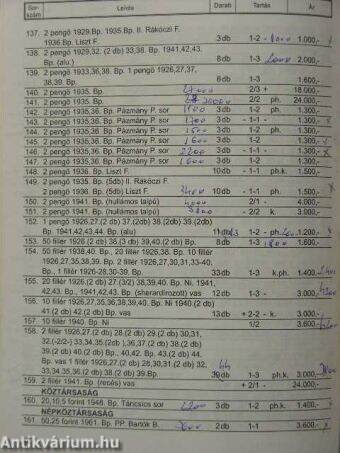 Sor-szám Leírás Darab Tartás Ár
137. 2 pengő 1929.Bp. 1935.Bp. II. Rákóczi F.
1936.Bp. Liszt F. 3db 1-2 - 1.000,-
138. 2 pengő 1929,32. (2 db) 33,38. Bp. 1941,42,43.
Bp. (alu.) 8db 1-3 2.000,-
139. 2 pengő 1933,36,38. Bp. 1 pengő 1926,27,37,
38,39. Bp. 8db 1-3 1.600,-
140. 2 pengő 1935. Bp. 2/3 + 18.000,-
141. 2 pengő 1935. Bp. 2/2 ph. 24.000,-
142. 2 pengő 1935,36. Bp. Pázmány P. sor 3db - 1-1 - 1.300,-
143. 2 pengő 1935,36. Bp. Pázmány P. sor 3db - 1-1 - 1.300,-
144. 2 pengő 1935,36. Bp. Pázmány P. sor 3db - 1-1 - 1.300,-
145. 2 pengő 1935,36. Bp. Pázmány P. sor 3db - 1-1 - 1.300,-
146. 2 pengő 1935,36. Bp. Pázmány P. sor 3db - 1-1 - 1.300,-
147. 2 pengő 1935,36. Bp. Pázmány P. sor 3db - 1-1 - 1.300,-
148. 2 pengő 1936. Bp. Liszt F. 10db - 1-1 ph. 1.500,-
149. 2 pengő 1935. Bp. (5db) II. Rákóczi F.
2 pengő 1936. Bp. (5db) Liszt F. 10db - 1-1 ph. 1.500,-
150. 2 pengő 1941. Bp. (hullámos talpú) - 2/2 3.000,-
151. 2 pengő 1941. Bp. (hullámos talpú) - 2/2 k. 3.000,-
152. 1 pengő 1926,27.(2 db) 37.(2db) 38.(2db) 39.(2db)
Bp. 1941,42,43,44. Bp. (alu) 1-3 ph. 1.200,-
153. 50 fillér 1926.(2 db) 38.(3 db) 39,40.(2 db) Bp. 8db 1-3 1.600,-
154. 50 fillér 1938,40. Bp., 20 fillér 1926,38. Bp. 10 fillér
1926,27,35,38,39. Bp. 2 fillér 1926,27,30,31,33-40.
Bp., 1 fillér 1926-28.30-39. Bp. 33db 1-3 k.ph. 1.400,-
155. 20 fillér 1926.(2 db) 27.(3/2) 38,39,40. Bp. Ni. 1941,
42,43. Bp., 1941,42,43. Bp. (sherardírozott) vas 12db 1-3 - 3.000,-
156. 10 fillér 1926,27,35,36,38,39,40. Bp. Ni 1940 (2 db)
41.(2 db) 42.(2 db) Bp. vas 13db + 2-2 - k. 3.000,-
157. 10 fillér 1940. Bp. Ni 1/2 3.600,-
158. 2 fillér 1926,27.(2 db) 28.(2 db) 29.(2 db) 30,31,
32.(-2/2-) 33,34,35.(2db ),36,37.(2 db) 38.(2 db)
39.(2 db) 40.(2 db) Bp., 40,42. Bp. 43.(2 db) 44.
Bp. vas 1 fillér 1926,27.(2 db) 28,30,31.(2 db) 32,
33,34,35,36.(2 db) 38.(2 db) 39.Bp. 1-3 ph.k. 3.000,-
159. 2 fillér 1941. Bp. (recés) vas + 2/1 - 24.000,-
KÖZTÁRSASÁG
160. 20,10,5 forint 1948. Bp. Táncsics sor 3db 1-2 ph.k. 1.400,-
NÉPKÖZTÁRSASÁG
161. 50,25 forint 1961. Bp. PP. Bartók B. 2db 1-1 3.600,-
Antikvárium.hu